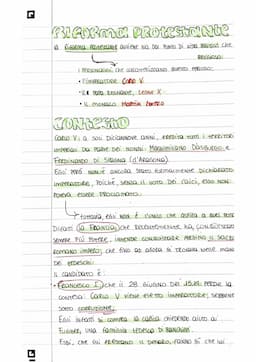 RIFORMA PROTESTANTE
la RIFORMA PROTESTANTE avviene sia dal punto di vista politico che
religioso.
I personaggi che caratterizzano questo periodo:
• l'imperatore Carlo V
• il papa regnante, Leone X
• il monaco Martin Lutero
CONTESTO
Carlo V, a soli diciannove anni, eredita tutti i territori
imperiali da parte dei nonni: Massimiliano D'Asburgo e
Ferdinando di Spagna (d'Aragona).
Egli però non è ancora stato formalmente dichiarato
imperatore, poiché, senza il voto dei laici, egli non
poteva essere proclamato.
Tuttavia, egli non è l'unico che aspira a quel
Difatti la Francia, che recentemente ha
sempre più potere, intende conquistare il sacro
romano impero, che fino ad allora si trovava nelle mani
dei tedeschi.
Il candidato è:
• Francesco I, che il 28 giugno del 1519 perde la
contesa: Carlo V viene eletto imperatore, seppure
sotto corruzione.
Egli infatti si compra la carica chiedendo aiuto ai
Fugger, una famiglia tedesca di banchieri.
Essi, che gli prestano il denaro, fanno sì che lui